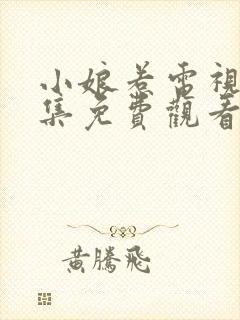 小娘惹雷視
集免費觀看
黃騰飛